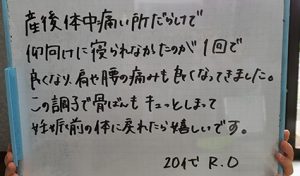 産後体中痛い所だらけで
仰向けに寝られなかたのが1回で
良くなり肩や腰の痛みも良くなってきました。
この調子で骨ばんもキュッとしまって
妊娠前の体に戻れたら嬉しいです。
20代 R.O